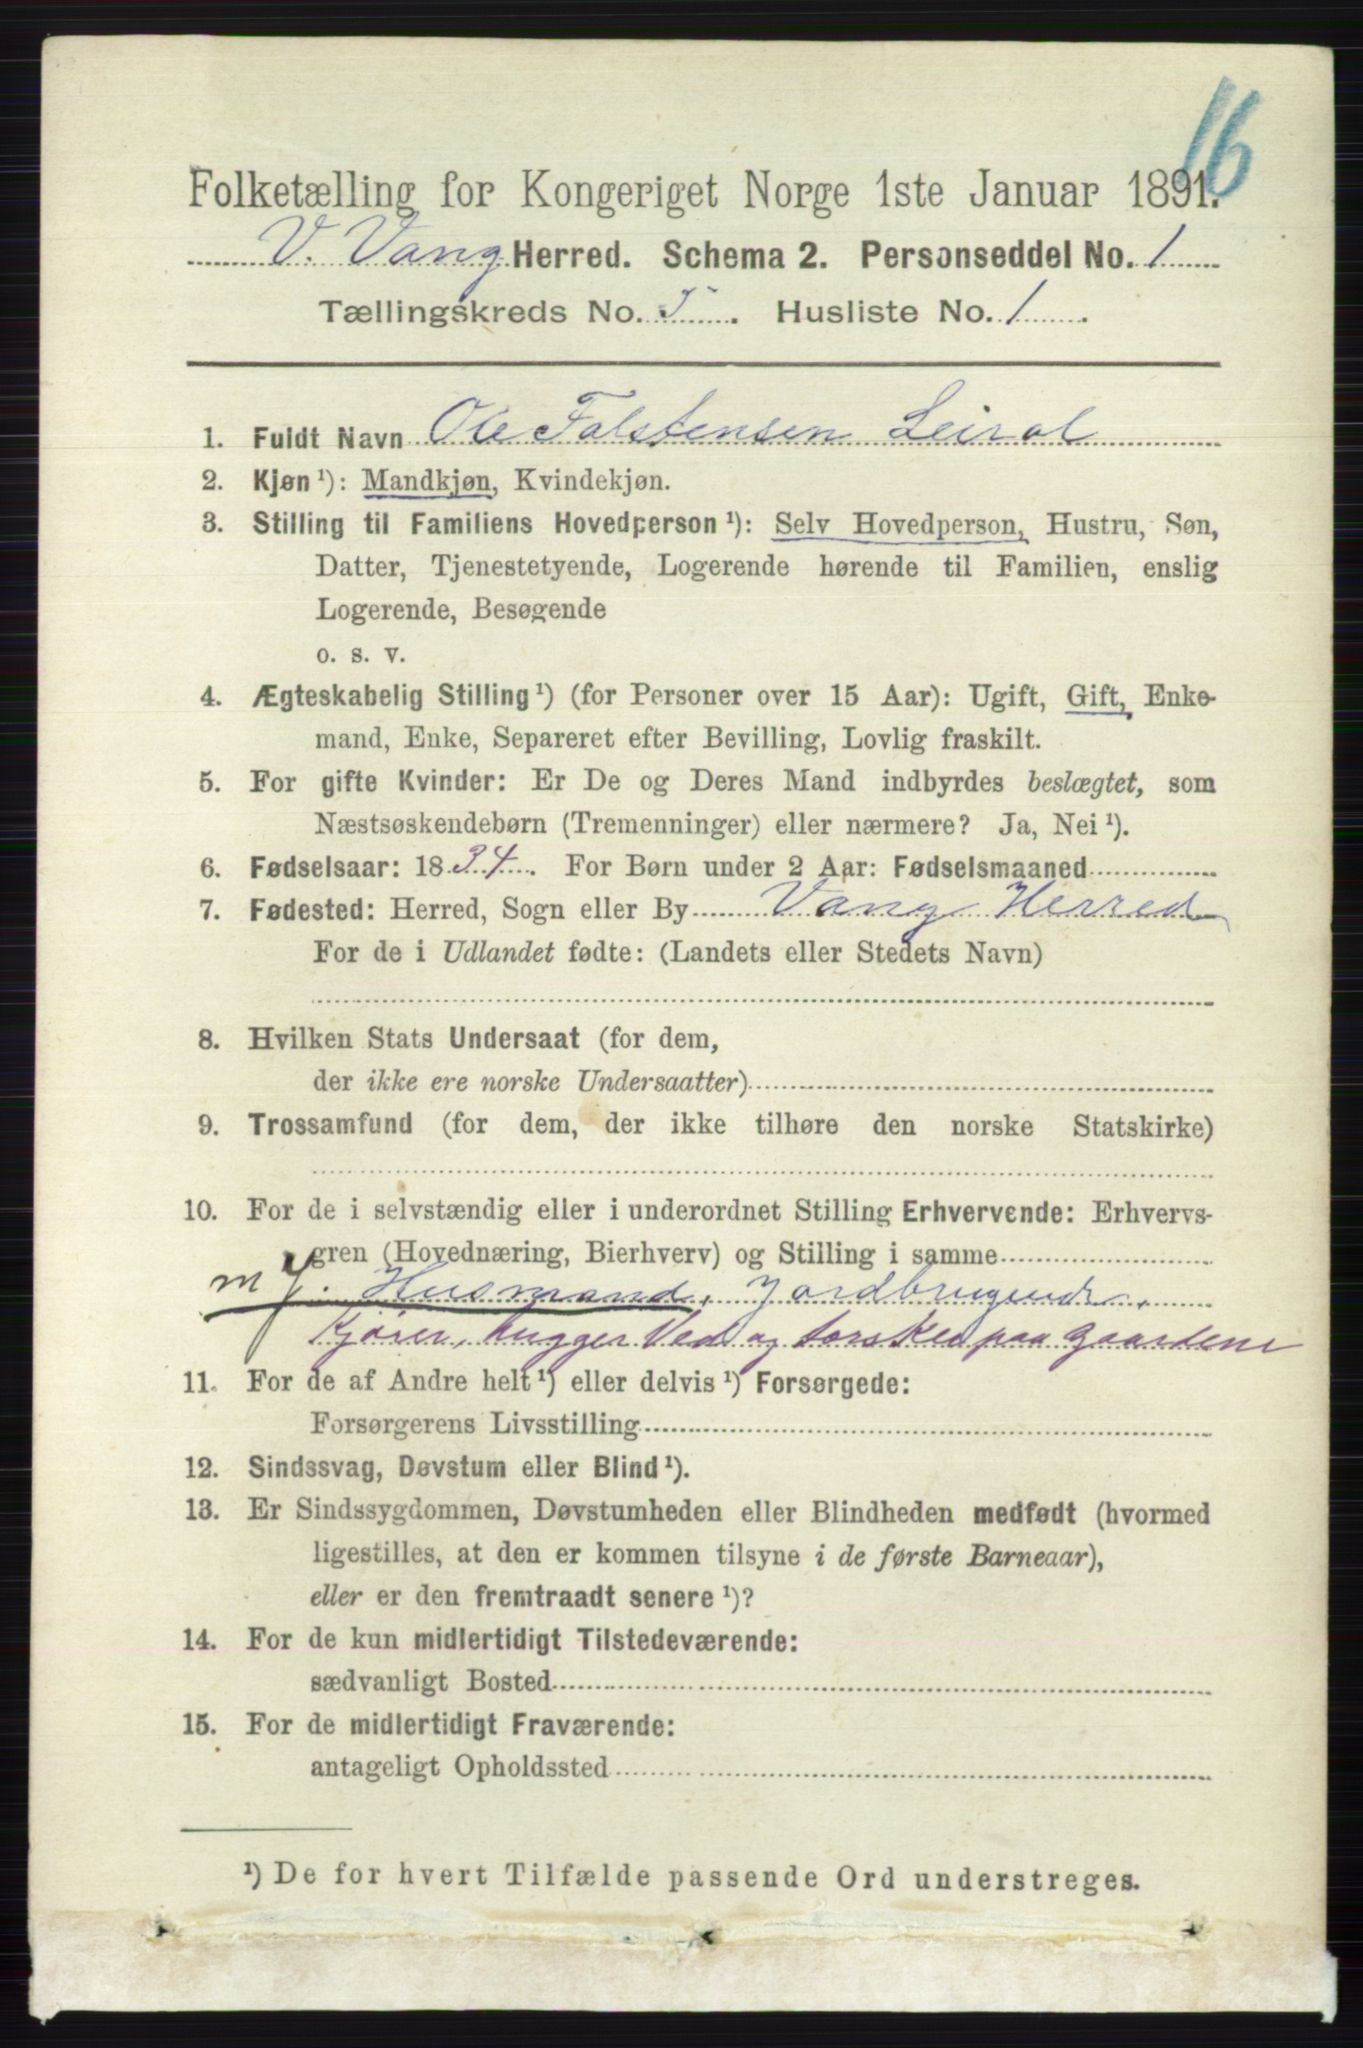 16
Folketælling for Kongeriget Norge 1ste Januar 1891.
V. Vang Herred. Schema 2. Personseddel No. 1
Tællingskreds No. 5. Husliste No. 1.
1. Fuldt Navn Ole Falstensen Leirol
2. Kjøn ¹): Mandkjøn, Kvindekjøn.
3. Stilling til Familiens Hovedperson ¹): Selv Hovedperson, Hustru, Søn,
Datter, Tjenestetyende, Logerende hørende til Familien, enslig
Logerende, Besøgende
o. s. v.
4. Ægteskabelig Stilling ¹) (for Personer over 15 Aar): Ugift, Gift, Enke-
mand, Enke, Separeret efter Bevilling, Lovlig fraskilt.
5. For gifte Kvinder: Er De og Deres Mand indbyrdes beslægtet, som
Næstsøskendebørn (Tremenninger) eller nærmere? Ja, Nei ¹).
6. Fødselsaar: 1834. For Børn under 2 Aar: Fødselsmaaned
7. Fødested: Herred, Sogn eller By Vang Herred
For de i Udlandet fødte: (Landets eller Stedets Navn)
8. Hvilken Stats Undersaat (for dem,
der ikke ere norske Undersaatter)
9. Trossamfund (for dem, der ikke tilhøre den norske Statskirke)
10. For de i selvstændig eller i underordnet Stilling Erhvervende: Erhvervs-
gren (Hovednæring, Bierhverv) og Stilling i samme
m J. Husmand, Jordbrugende,
Kjører, hugger Ved og tærsker paa Gaardene
11. For de af Andre helt ¹) eller delvis ¹) Forsørgede:
Forsørgerens Livsstilling
12. Sindssvag, Døvstum eller Blind ¹).
13. Er Sindssygdommen, Døvstumheden eller Blindheden medfødt (hvormed
ligestilles, at den er kommen tilsyne i de første Barneaar),
eller er den fremtraadt senere ¹)?
14. For de kun midlertidigt Tilstedeværende:
sædvanligt Bosted
15. For de midlertidigt Fraværende:
antageligt Opholdssted
¹) De for hvert Tilfælde passende Ord understreges.